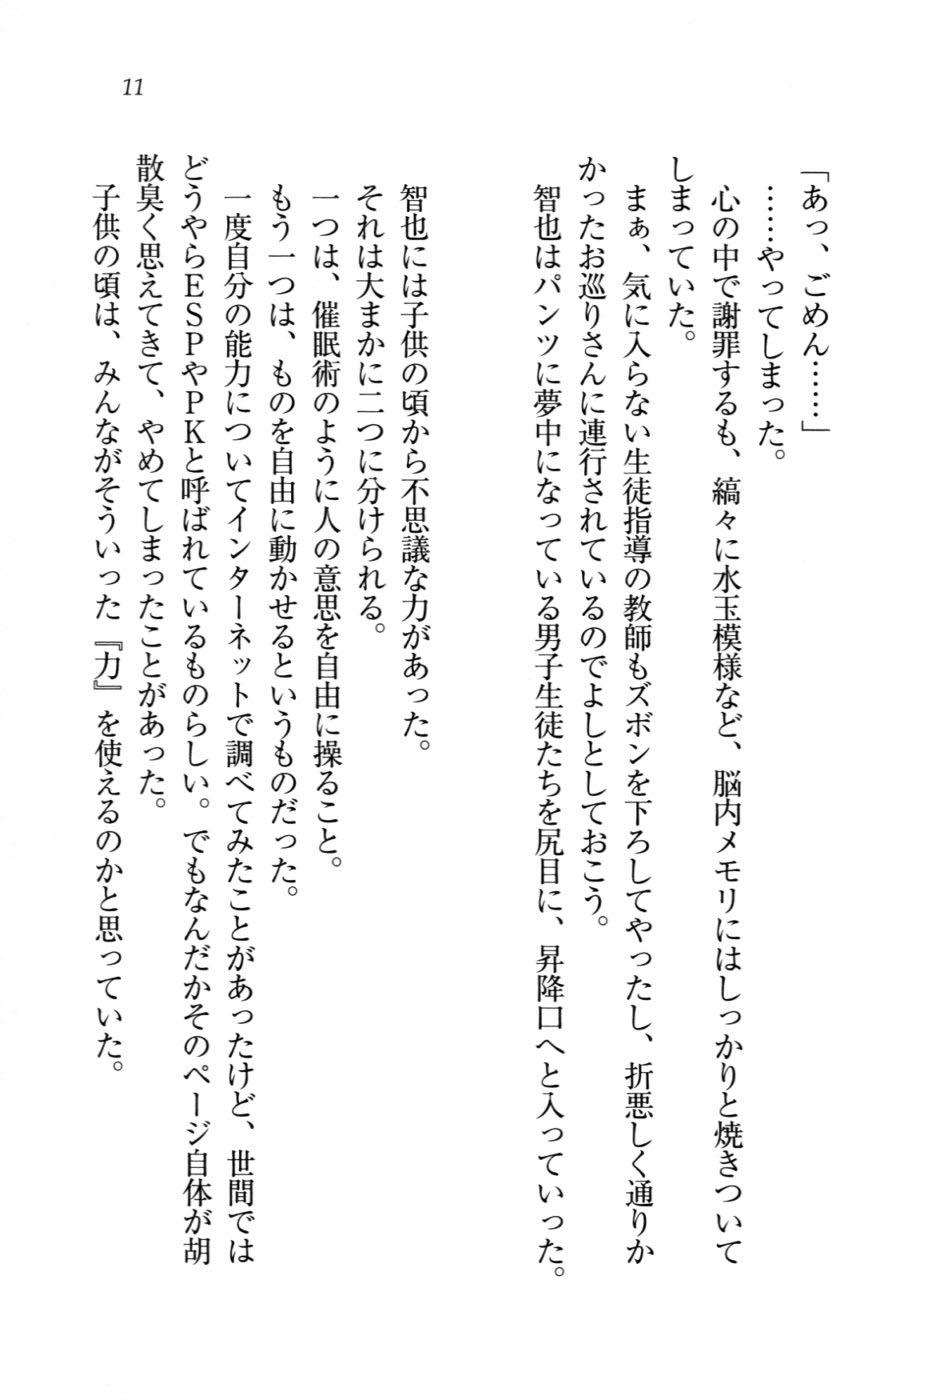 11
「あっ、ごめん……」
……やってしまった。
心の中で謝罪するも、縞々に水玉模様など、脳内メモリにはしっかりと焼きついて
しまっていた。
まぁ、気に入らない生徒指導の教師もズボンを下ろしてやったし、折悪しく通りか
かったお巡りさんに連行されているのでよしとしておこう。
智也はパンツに夢中になっている男子生徒たちを尻目に、昇降口へと入っていった。
智也には子供の頃から不思議な力があった。
それは大まかに二つに分けられる。
一つは、催眠術のように人の意思を自由に操ること。
もう一つは、ものを自由に動かせるというものだった。
一度自分の能力についてインターネットで調べてみたことがあったけど、世間では
どうやらＥＳＰやＰＫと呼ばれているものらしい。でもなんだかそのページ自体が胡
散臭く思えてきて、やめてしまったことがあった。
子供の頃は、みんながそういった『力』を使えるのかと思っていた。